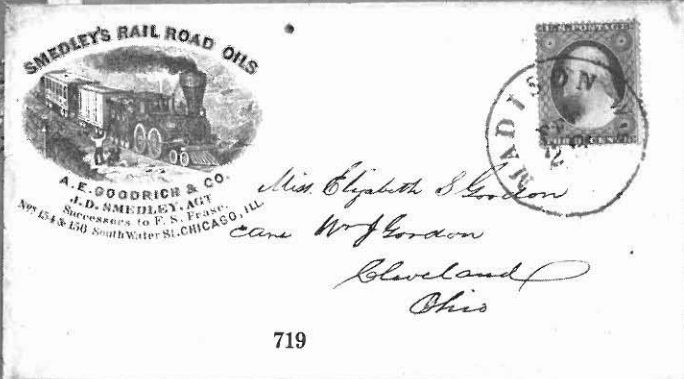 SMEDLEY'S RAIL ROAD OILS
A.E. GOODRICH & CO.
J.D. SMEDLEY, AGT
Successors to F. S. Frase.
Nos 154 & 156 South Water St. CHICAGO, ILL.
MADISON
Miss. Elizabeth S Gordon
care Wm J Gordon
Cleveland
Ohio
719